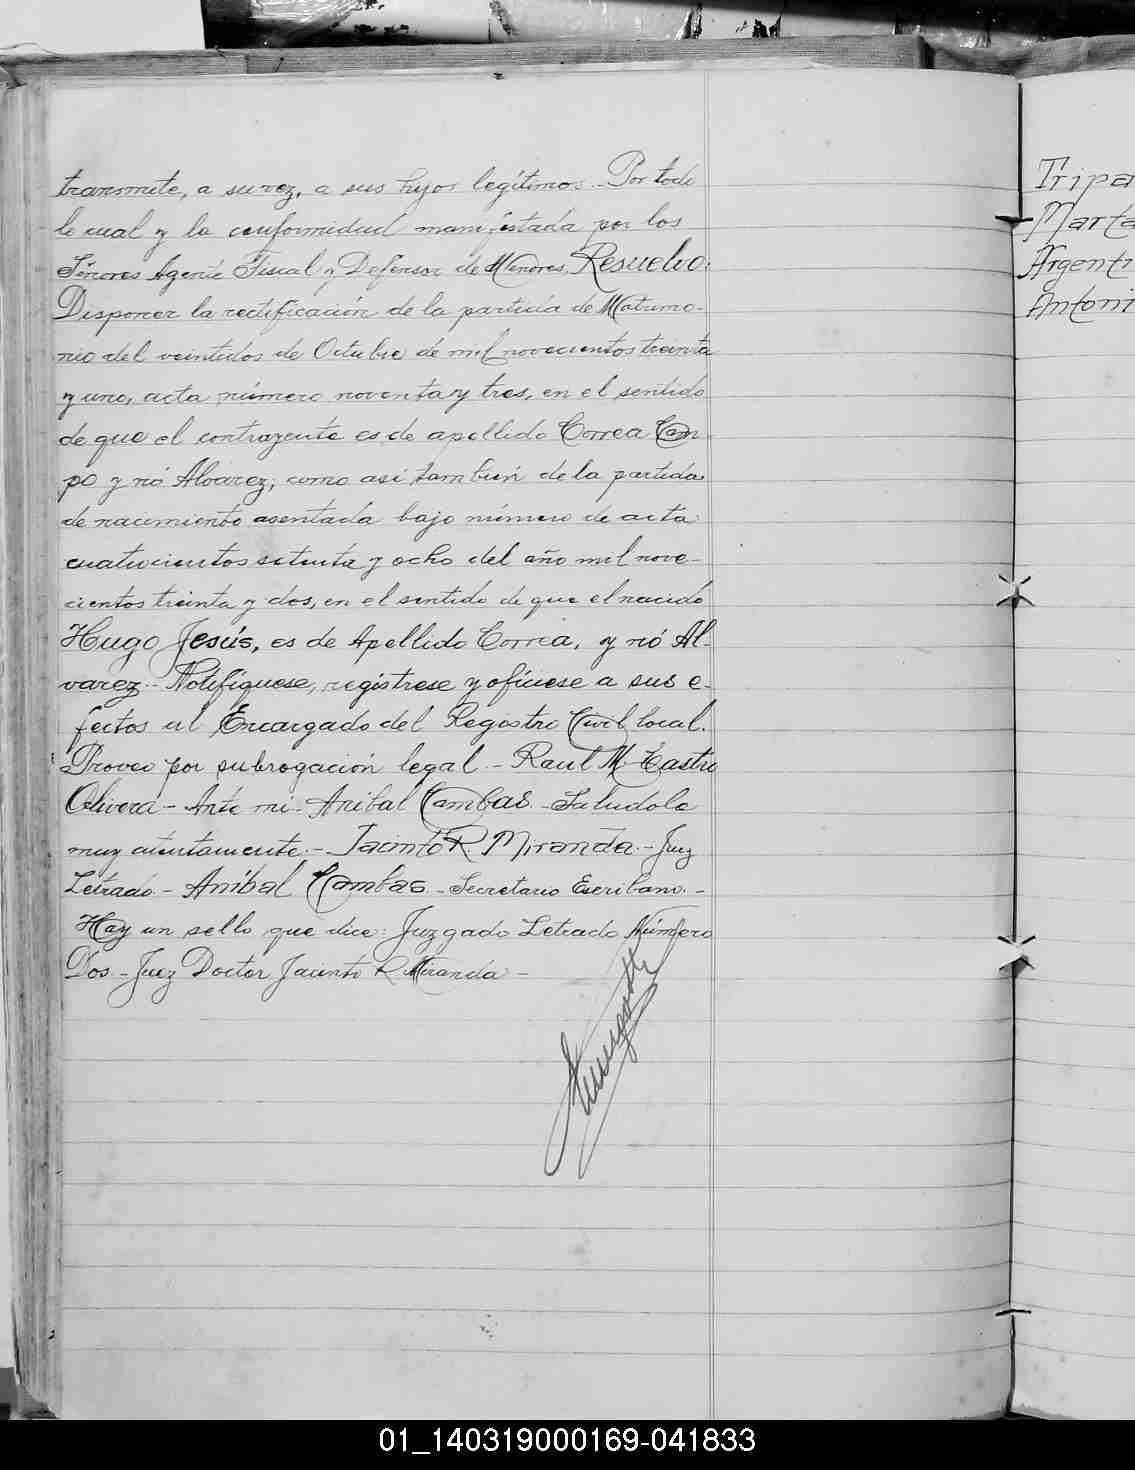 transmite, a su vez, a sus hijos legítimos.- Por todo
lo cual y la conformidad manifestada por los
Señores Agente Fiscal y Defensor de Menores, Resuelvo:
Disponer la rectificación de la partida de Matrimo-
nio del veintidos de Octubre de mil novecientos treinta
y uno, acta número noventa y tres, en el sentido
de que el contrayente es de apellido Correa Cam-
po y nó Alvarez; como así también de la partida
de nacimiento asentada bajo número de acta
cuatrocientos setenta y ocho del año mil nove-
cientos treinta y dos, en el sentido de que el nacido
Hugo Jesús, es de Apellido Correa, y nó Al-
varez.- Notifíquese, regístrese y ofíciese a sus e-
fectos al Encargado del Registro Civil local.
Proveo por subrogación legal.- Raul M. Castro
Olivera - Ante mi.- Anibal Cambas.- Saludole
muy atentamente.- Jacinto R. Miranda.- Juez
Letrado.- Aníbal Cambas - Secretario Escribano.-
Hay un sello que dice: Juzgado Letrado Número
Dos.- Juez Doctor Jacinto R. Miranda -
Tripa
Marta
Argenti
Antoni
01_140319000169-041833